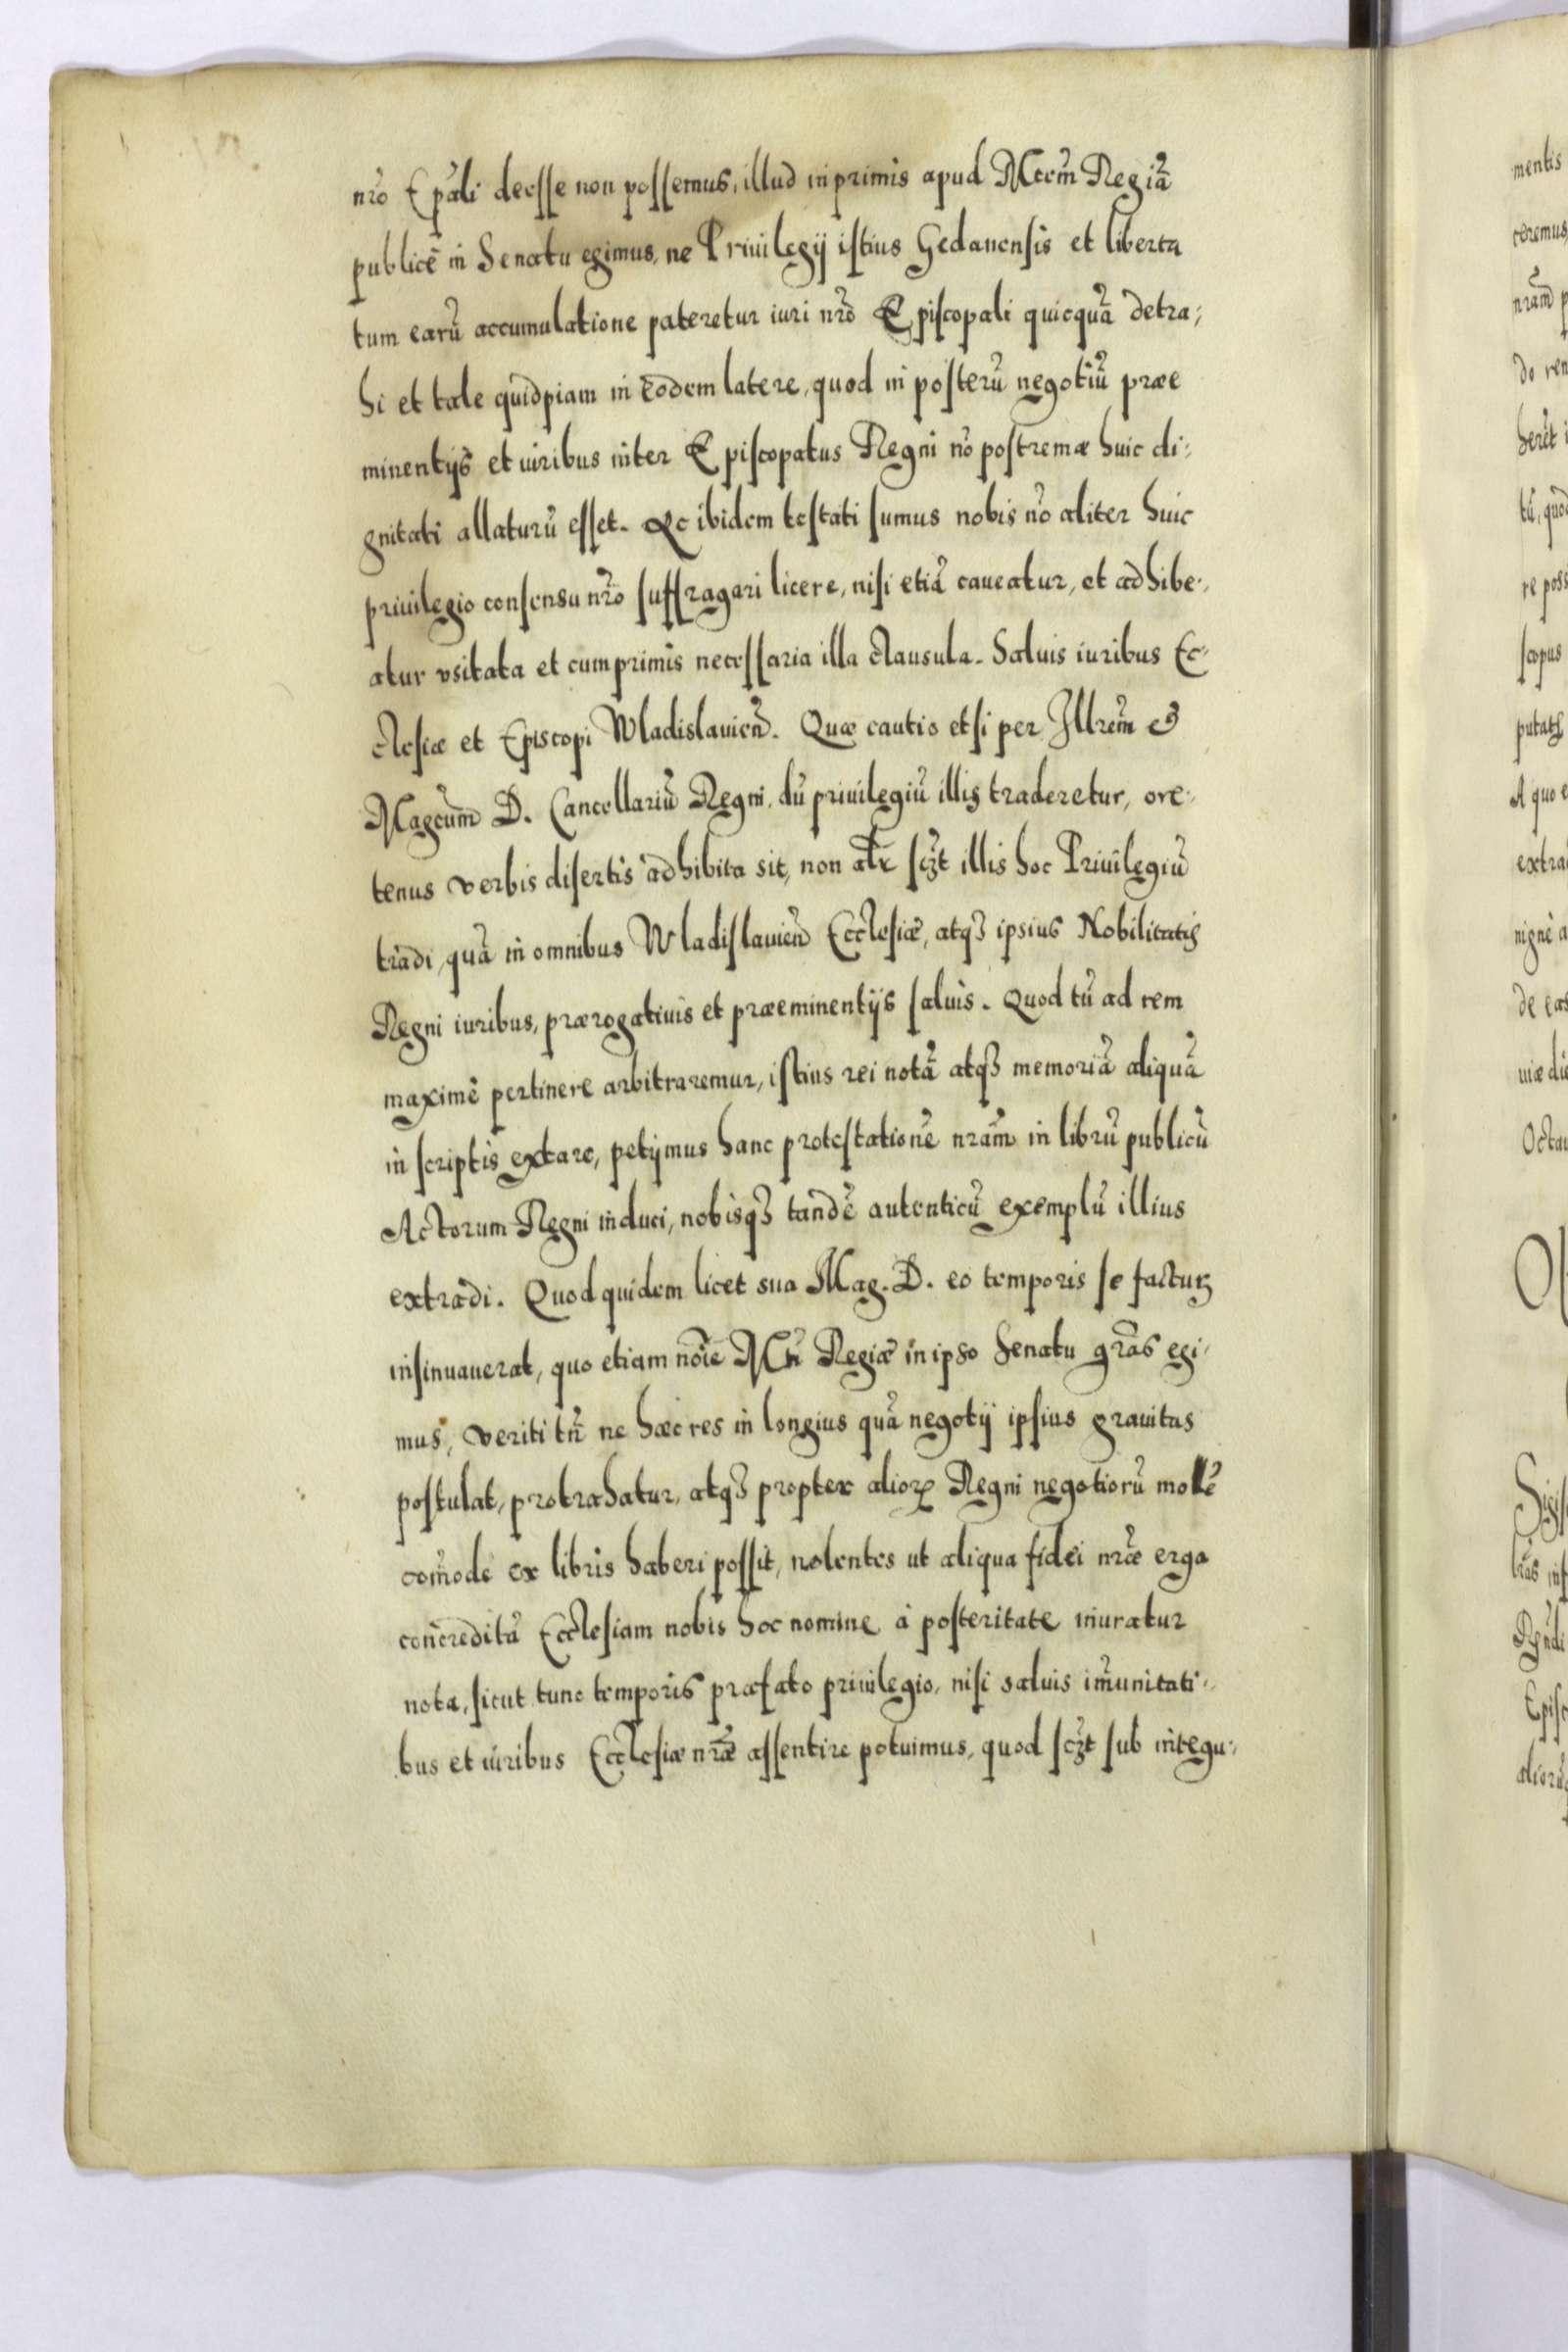 nr̃o Ep̃ali deesse non possemus, illud inprimis apud Mtem̃ Regiã
publicè in Senatu egimus, ne Priuilegij istius Gedanensis et liberta
tum earũ accumulatione pateretur iuri nr̃o Episcopali quicquã detra,
hi et tale quidpiam in eodem latere, quod in posterũ negotiũ præe
minentijs et iuribus inter Episcopatus Regni nõ postremæ huic di,
gnitati allaturũ esset. Ac ibidem testati sumus nobis nõ aliter huic
priuilegio consensu nr̃o suffragari licere, nisi etiã caueatur, et adhibe,
atur vsitata et cumprimis necessaria illa clausula. Saluis iuribus Ec,
clesiæ et Episcopi Wladislauieñ. Quæ cautio etsi per Illrem̃ et
Magcum̃ D. Cancellariũ Regni, dũ priuilegiũ illis traderetur, ore,
tenus verbis disertis adhibita sit, non alr̃ sczt illis hoc Priuilegiũ
tradi, quã in omnibus Wladislauieñ Ecclesiæ, atqȝ ipsius Nobilitatis
Regni iuribus, prærogatiuis et præeminentijs saluis. Quod tũ ad rem
maximè pertinere arbitraremur, istius rei notã atqȝ memoriã aliquã
in scriptis extare, petijmus hanc protestationẽ nram̃ in librũ publicũ
Actorum Regni induci, nobisqȝ tandẽ autenticũ exemplũ illius
extradi. Quod quidem licet sua Mag. D. eo temporis se facturꝫ
insinuauerat, quo etiam noĩe Mtis̃ Regiæ in ipso Senatu grãs egi,
mus, veriti tñ ne hæc res in longius quã negotij ipsius grauitas
postulat, protrahatur, atqȝ propter alioꝝ Regni negotiorũ molẽ
com̃odè ex libris haberi possit, nolentes ut aliqua fidei nræ̃ erga
concreditã Ecclesiam nobis hoc nomine à posteritate inuratur
nota, sicut tunc temporis præfato priuilegio, nisi saluis im̃unitati,
bus et iuribus Ecclesiæ nræ̃ assentire potuimus, quod sczt sub integu,